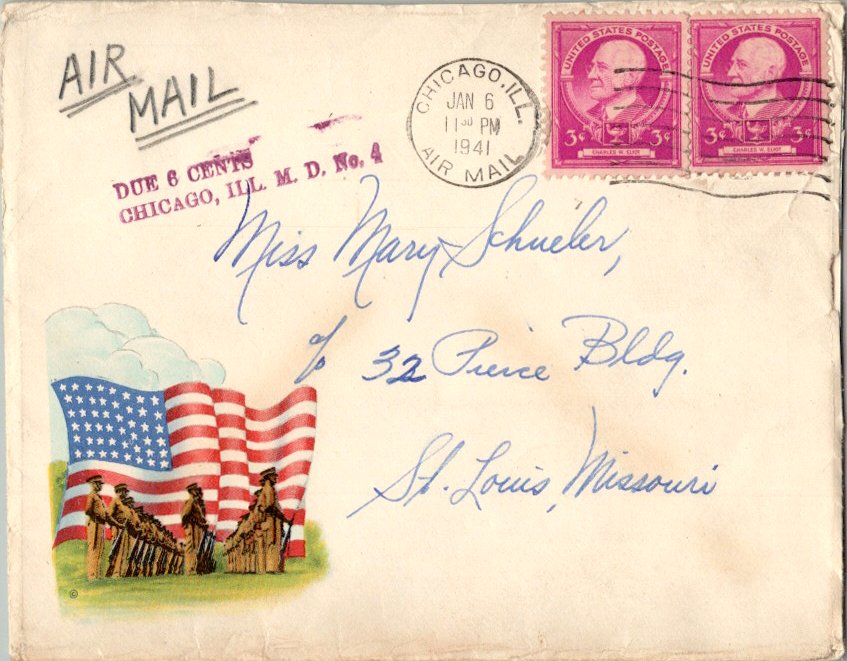 AIR
MAIL
DUE 6 CENTS
CHICAGO, ILL. M. D. No. 4
CHICAGO, ILL.
JAN 6
11 30 PM
1941
AIR MAIL
UNITED STATES POSTAGE
3¢ 3¢
CHARLES W. ELIOT
UNITED STATES POSTAGE
3¢ 3¢
CHARLES W. ELIOT
Miss Mary Schueler,
℅ 32 Pierce Bldg.
St. Louis, Missouri
©